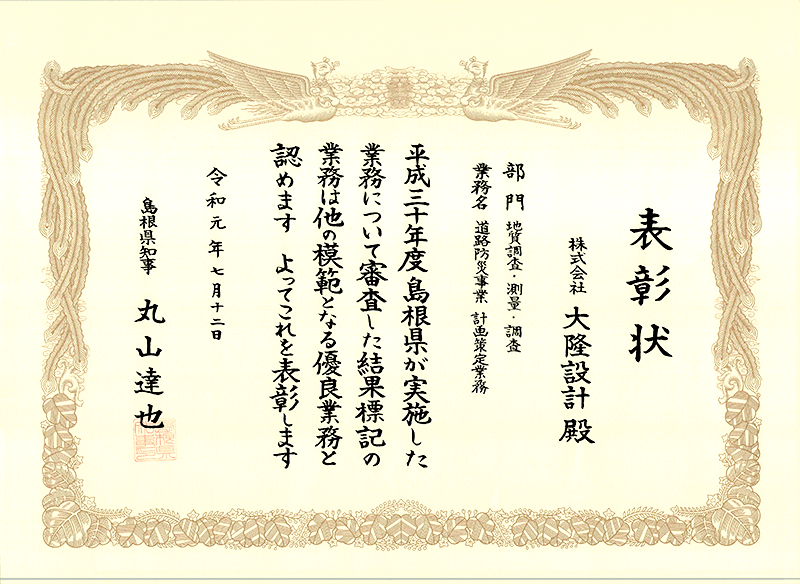 表彰状
株式会社 大隆設計 殿
部門 地質調査・測量・調査
業務名 道路防災事業 計画策定業務
平成三十年度島根県が実施した
業務について審査した結果標記の
業務は他の模範となる優良業務と
認めます よってこれを表彰します
令和元年七月十二日
島根県知事 丸山達也